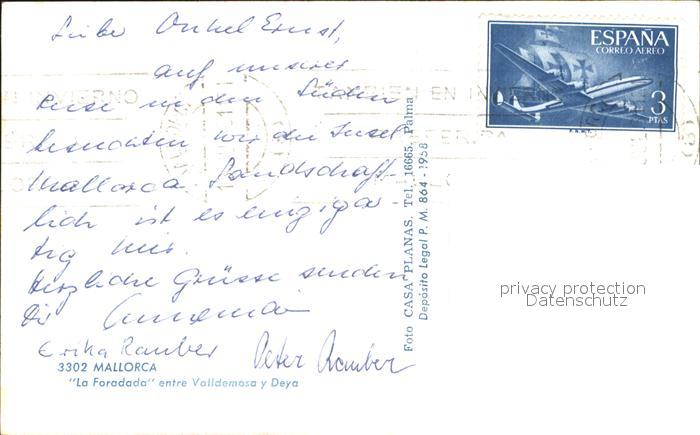 Lieber Onkel Ernst,
auf unserer
Reise in den Süden
besuchten wir die Insel
Mallorca. Landschaft-
lich ist es einziga-
tig hier.
Herzliche Grüsse senden
Dir
Erika Rauber Peter Rauber
3302 MALLORCA
"La Foradada" entre Valldemosa y Deya
Foto CASA PLANAS. Tel. 16665. Palma
Depósito Legal P. M. 864 - 1958
ESPAÑA
CORREO AEREO
3
PTAS
EN INVIERNO
privacy protection
Datenschutz